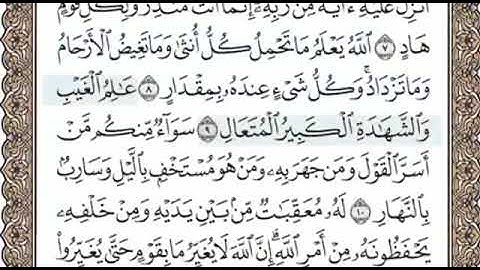 أُنزِلَ عَلَيْهِ ءَايَةٌ مِّن رَّبِّهِۦٓ إِنَّمَآ أَنتَ مُنذِرٌ وَلِكُلِّ قَوْمٍ
هَادٍ ٧ ٱللَّهُ يَعْلَمُ مَا تَحْمِلُ كُلُّ أُنثَىٰ وَمَا تَغِيضُ ٱلْأَرْحَامُ
وَمَا تَزْدَادُ ۖ وَكُلُّ شَىْءٍ عِندَهُۥ بِمِقْدَارٍ ٨ عَٰلِمُ ٱلْغَيْبِ
وَٱلشَّهَٰدَةِ ٱلْكَبِيرُ ٱلْمُتَعَالِ ٩ سَوَآءٌ مِّنكُم مَّنْ
أَسَرَّ ٱلْقَوْلَ وَمَن جَهَرَ بِهِۦ وَمَنْ هُوَ مُسْتَخْفٍۭ بِٱلَّيْلِ وَسَارِبٌۢ
بِٱلنَّهَارِ ١٠ لَهُۥ مُعَقِّبَٰتٌ مِّنۢ بَيْنِ يَدَيْهِ وَمِنْ خَلْفِهِۦ
يَحْفَظُونَهُۥ مِنْ أَمْرِ ٱللَّهِ ۗ إِنَّ ٱللَّهَ لَا يُغَيِّرُ مَا بِقَوْمٍ حَتَّىٰ يُغَيِّرُوا۟